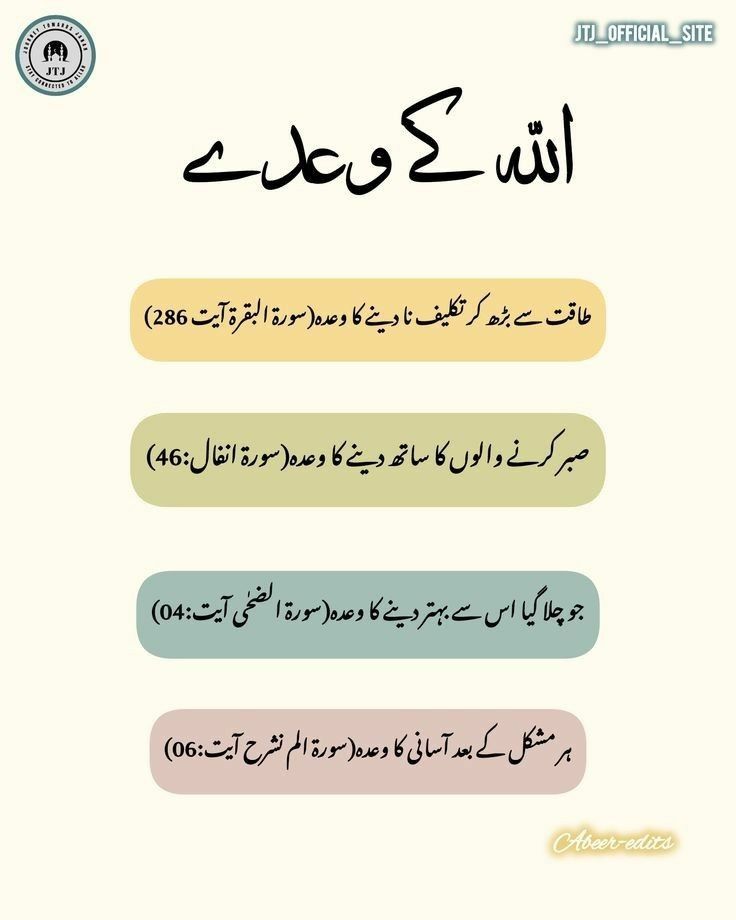 JOURNEY TOWARDS JANNAH
JTJ
STAY CONNECTED TO ALLAH
JTJ_OFFICIAL_SITE
اللہ کے وعدے
طاقت سے بڑھ کر تکلیف نا دینے کا وعدہ(سورۃ البقرۃ آیت 286)
صبر کرنے والوں کا ساتھ دینے کا وعدہ(سورۃ انفال:46)
جو چلا گیا اس سے بہتر دینے کا وعدہ(سورۃ الضحٰی آیت:04)
ہر مشکل کے بعد آسانی کا وعدہ(سورۃ الم نشرح آیت:06)
Abeer-edits